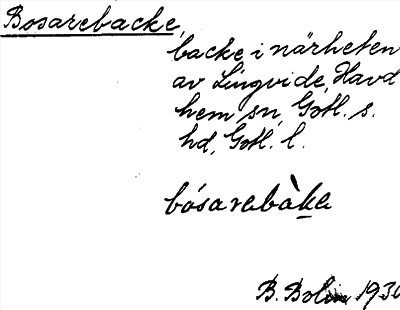 Bosarebacke,
backe i närheten
av Lingvide, Havd
hem sn, Gotl. s.
hd, Gotl. l.
bósarebàke
B. Bolin 1930